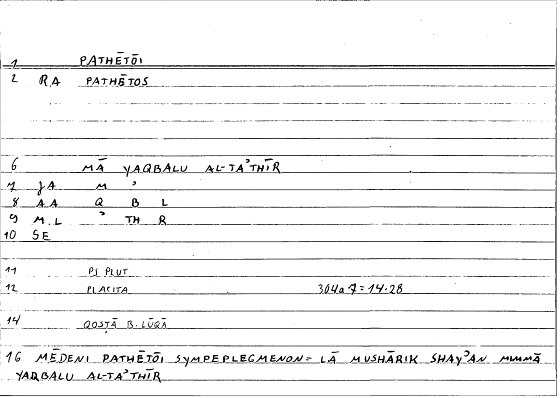 1 PATHĒTŌI
2 RA PATHĒTOS
6 MĀ YAQBALU AL-TAʾTHĪR
7 JA M ʾ
8 AA Q B L
9 M.L ʾ TH R
10 SE
11 PS PLUT
12 PLACITA 304a7=14.28
14 QOSṬĀ B. LŪQĀ
16 MĒDENI PATHĒTŌI SYMPEPLEGMENON= LĀ MUSHĀRIK SHAYʾAN MIMMĀ
YAQBALU AL-TAʾTHĪR